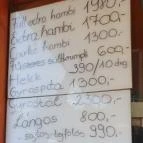 Tüll extra hambi 1980,-
Extra hambi 1700,-
Csirke hambi 1300,-
Fűszeres sültkrumpli 600,-
Hekk 390/10 dkg
Gyrospita 1300,-
Gyrostál 2300,-
Lángos 800,-
sajtos-tejfölös 990,-